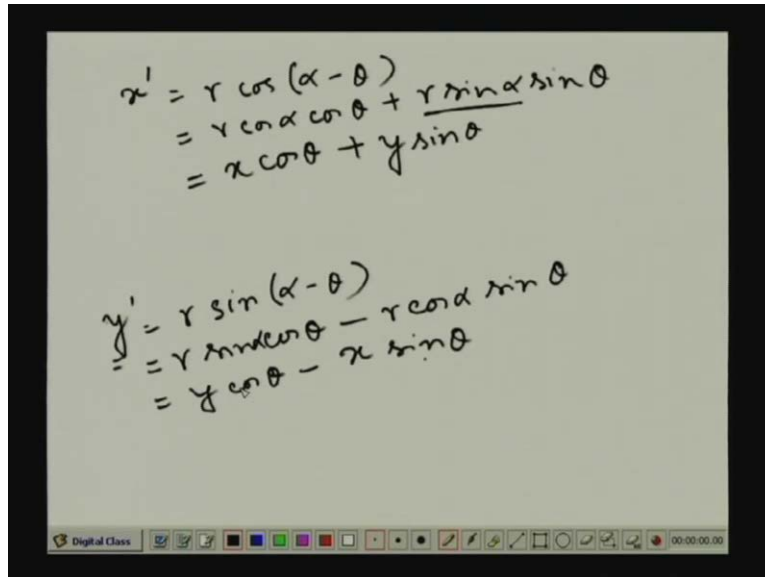 x' = r cos (α - θ)
= r cos α cos θ + r sin α sin θ
= x cos θ + y sin θ
y' = r sin (α - θ)
= r sin α cos θ - r cos α sin θ
= y cos θ - x sin θ
Digital Class 00:00:00.00